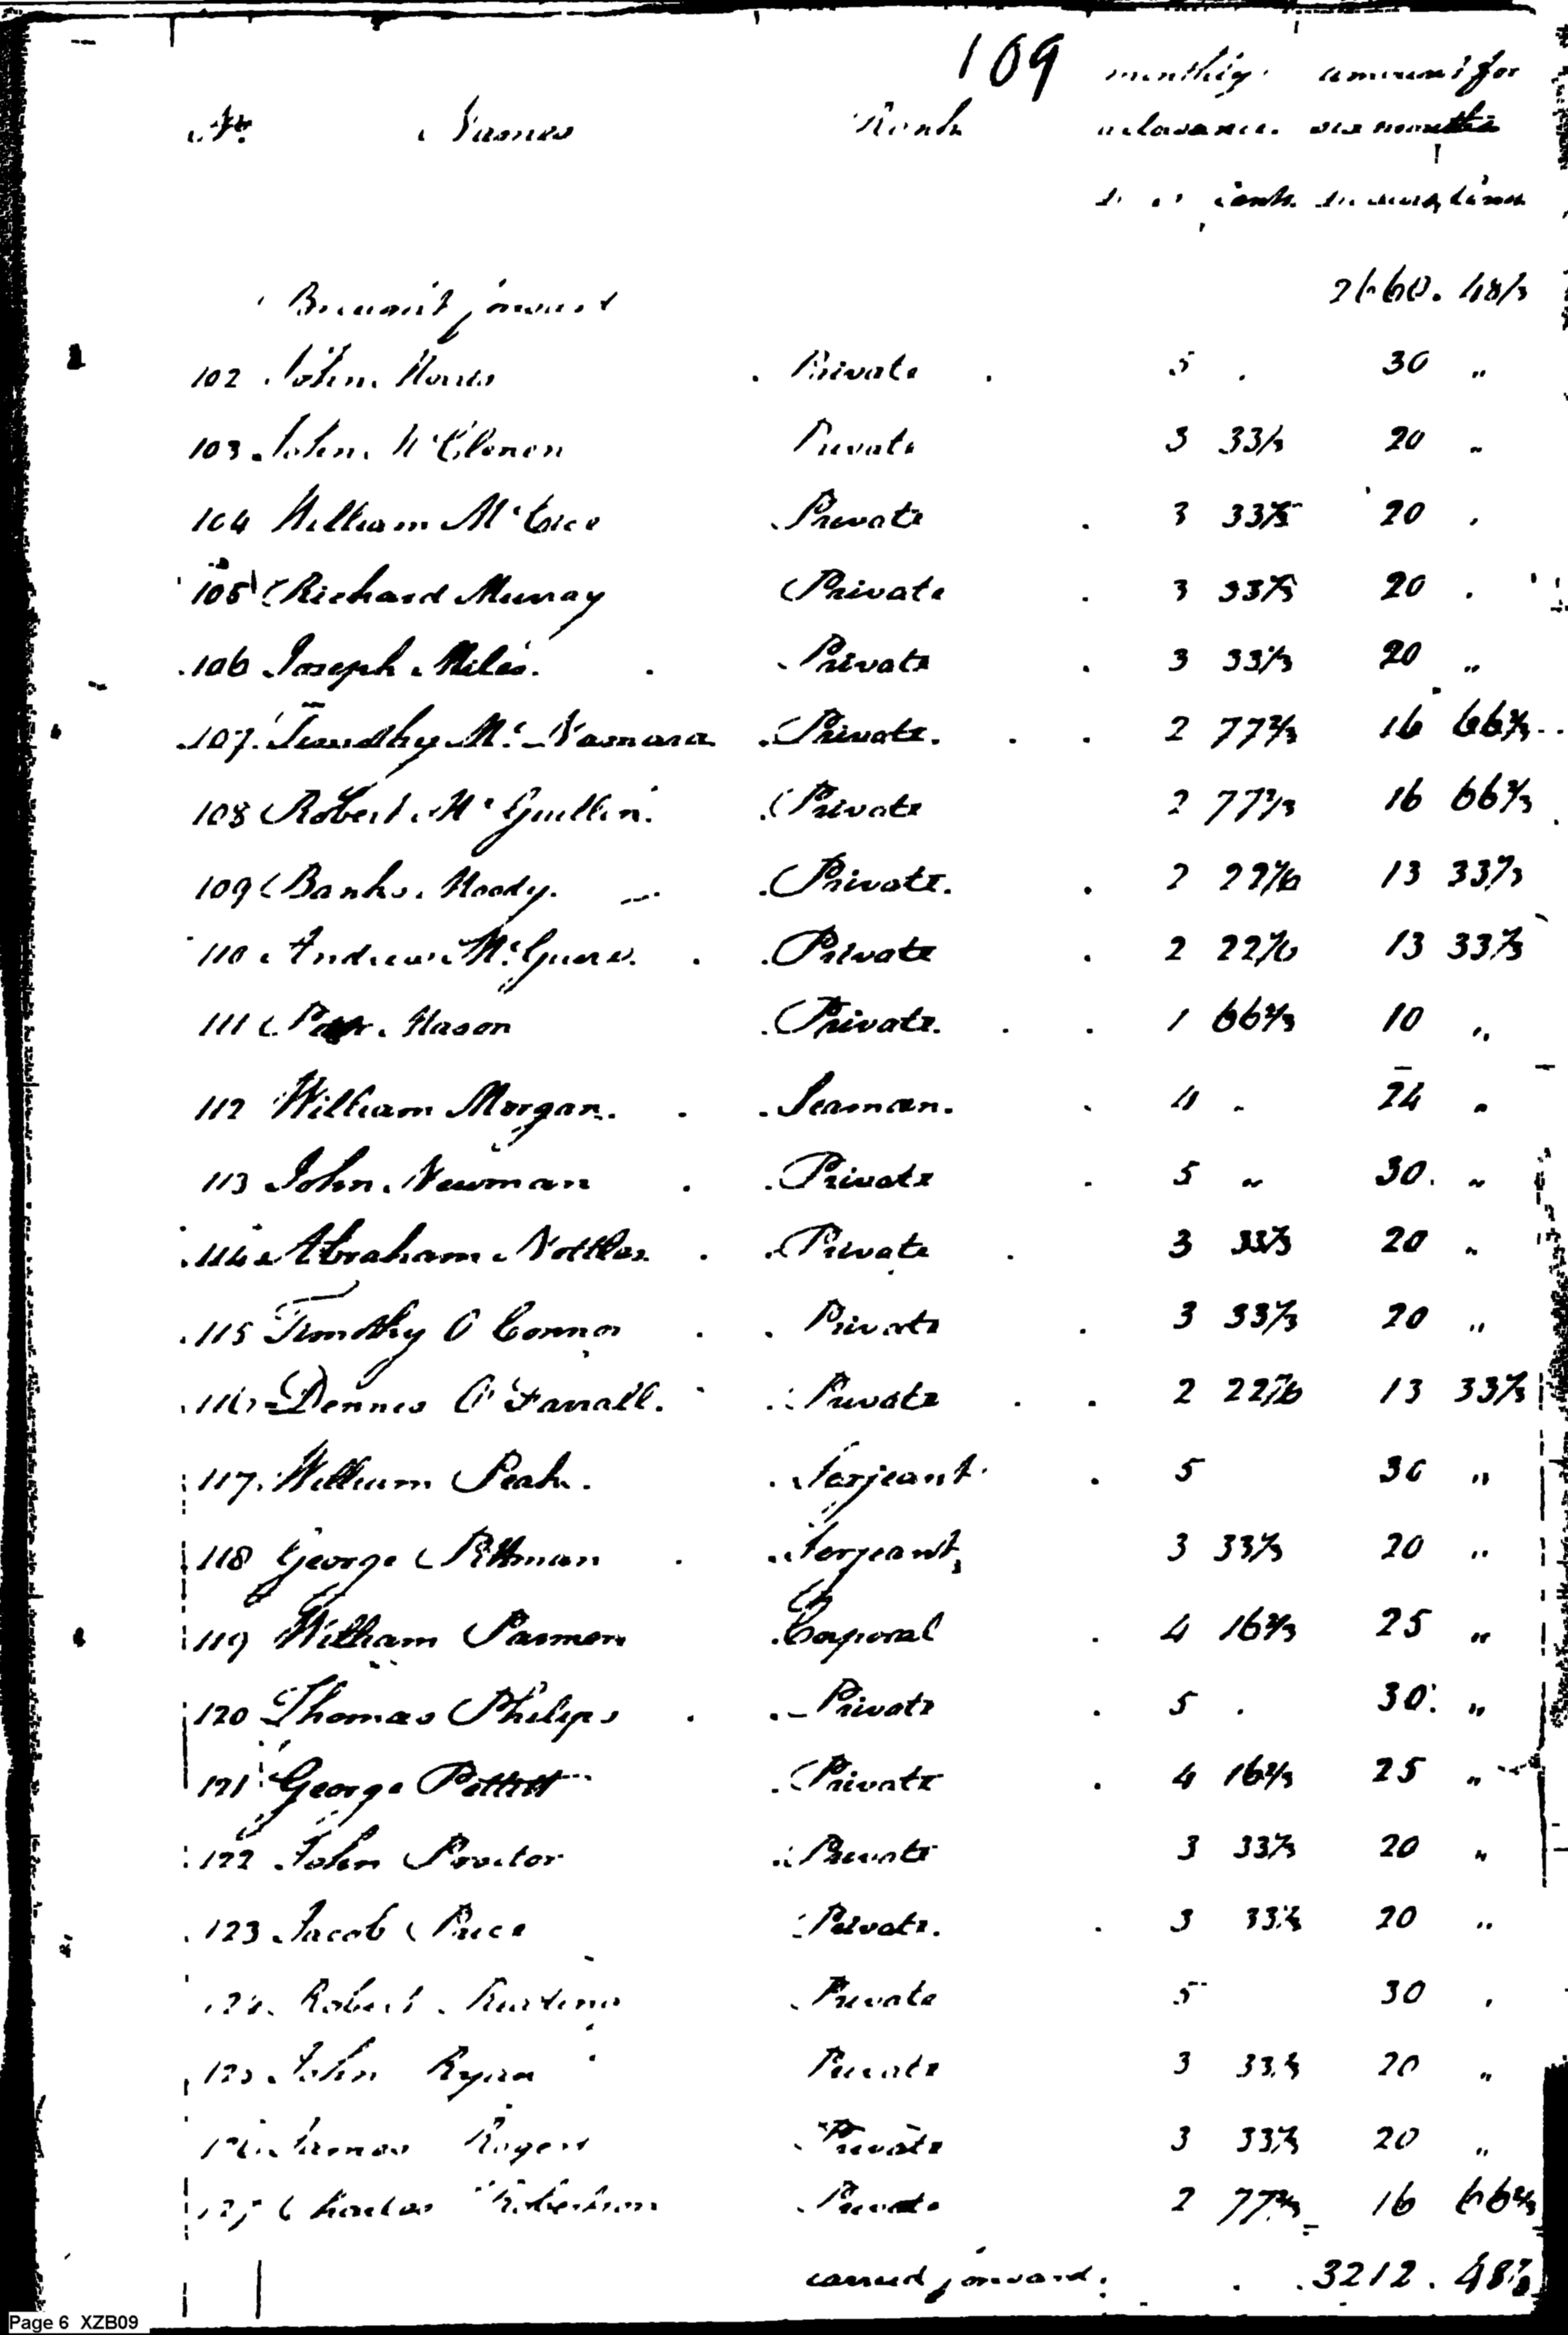 109 monthly amount for
No. Names Rank allowance. six months
cents
Brought forward 2660. 48/3
102 John Morris Private 5 . 30 "
103 John McClenen Private 3 33/3 20 "
104 William McCrice Private 3 33⅓ 20 .
105 Richard Murray Private 3 33⅓ 20 .
106 Joseph Miles. Private 3 33⅓ 20 "
107. Timothy Mc. Namara Private. 2 77⅔ 16 66⅔
108 Robert McGuillin. Private 2 77⅔ 16 66⅔
109 Banks. Moody. Private. 2 22 2/6 13 33⅓
110 Andrew McGuire. Private 2 22 2/6 13 33⅓
111 Mason Private. 1 66⅔ 10 "
112 William Morgan. Seaman. 4 - 24 "
113 John Newman Private 5 " 30. "
114 Abraham Nettles Private 3 33⅓ 20 "
115 Timothy O Conner Private 3 33⅓ 20 "
116 Dennis O'Farrall. Private 2 22 2/6 13 33⅓
117. William Peak. Serjeant 5 30 "
118 George Pittman Serjeant, 3 33⅓ 20 "
119 William Parmer Corporal 4 16⅔ 25 "
120 Thomas Philips Private 5 . 30. "
121 George Pettitt Private 4 16⅔ 25 "
122 John Proctor Private 3 33⅓ 20 "
123 Jacob Price Private. 3 33⅓ 20 "
124. Robert Private 5 30 "
125 John Ryan Private 3 33⅓ 20 "
126 James Rogers Private 3 33⅓ 20 "
127 Charles Robertson Private 2 77⅔ 16 66⅔
carried forward. 3212. 48⅓
Page 6 XZB09